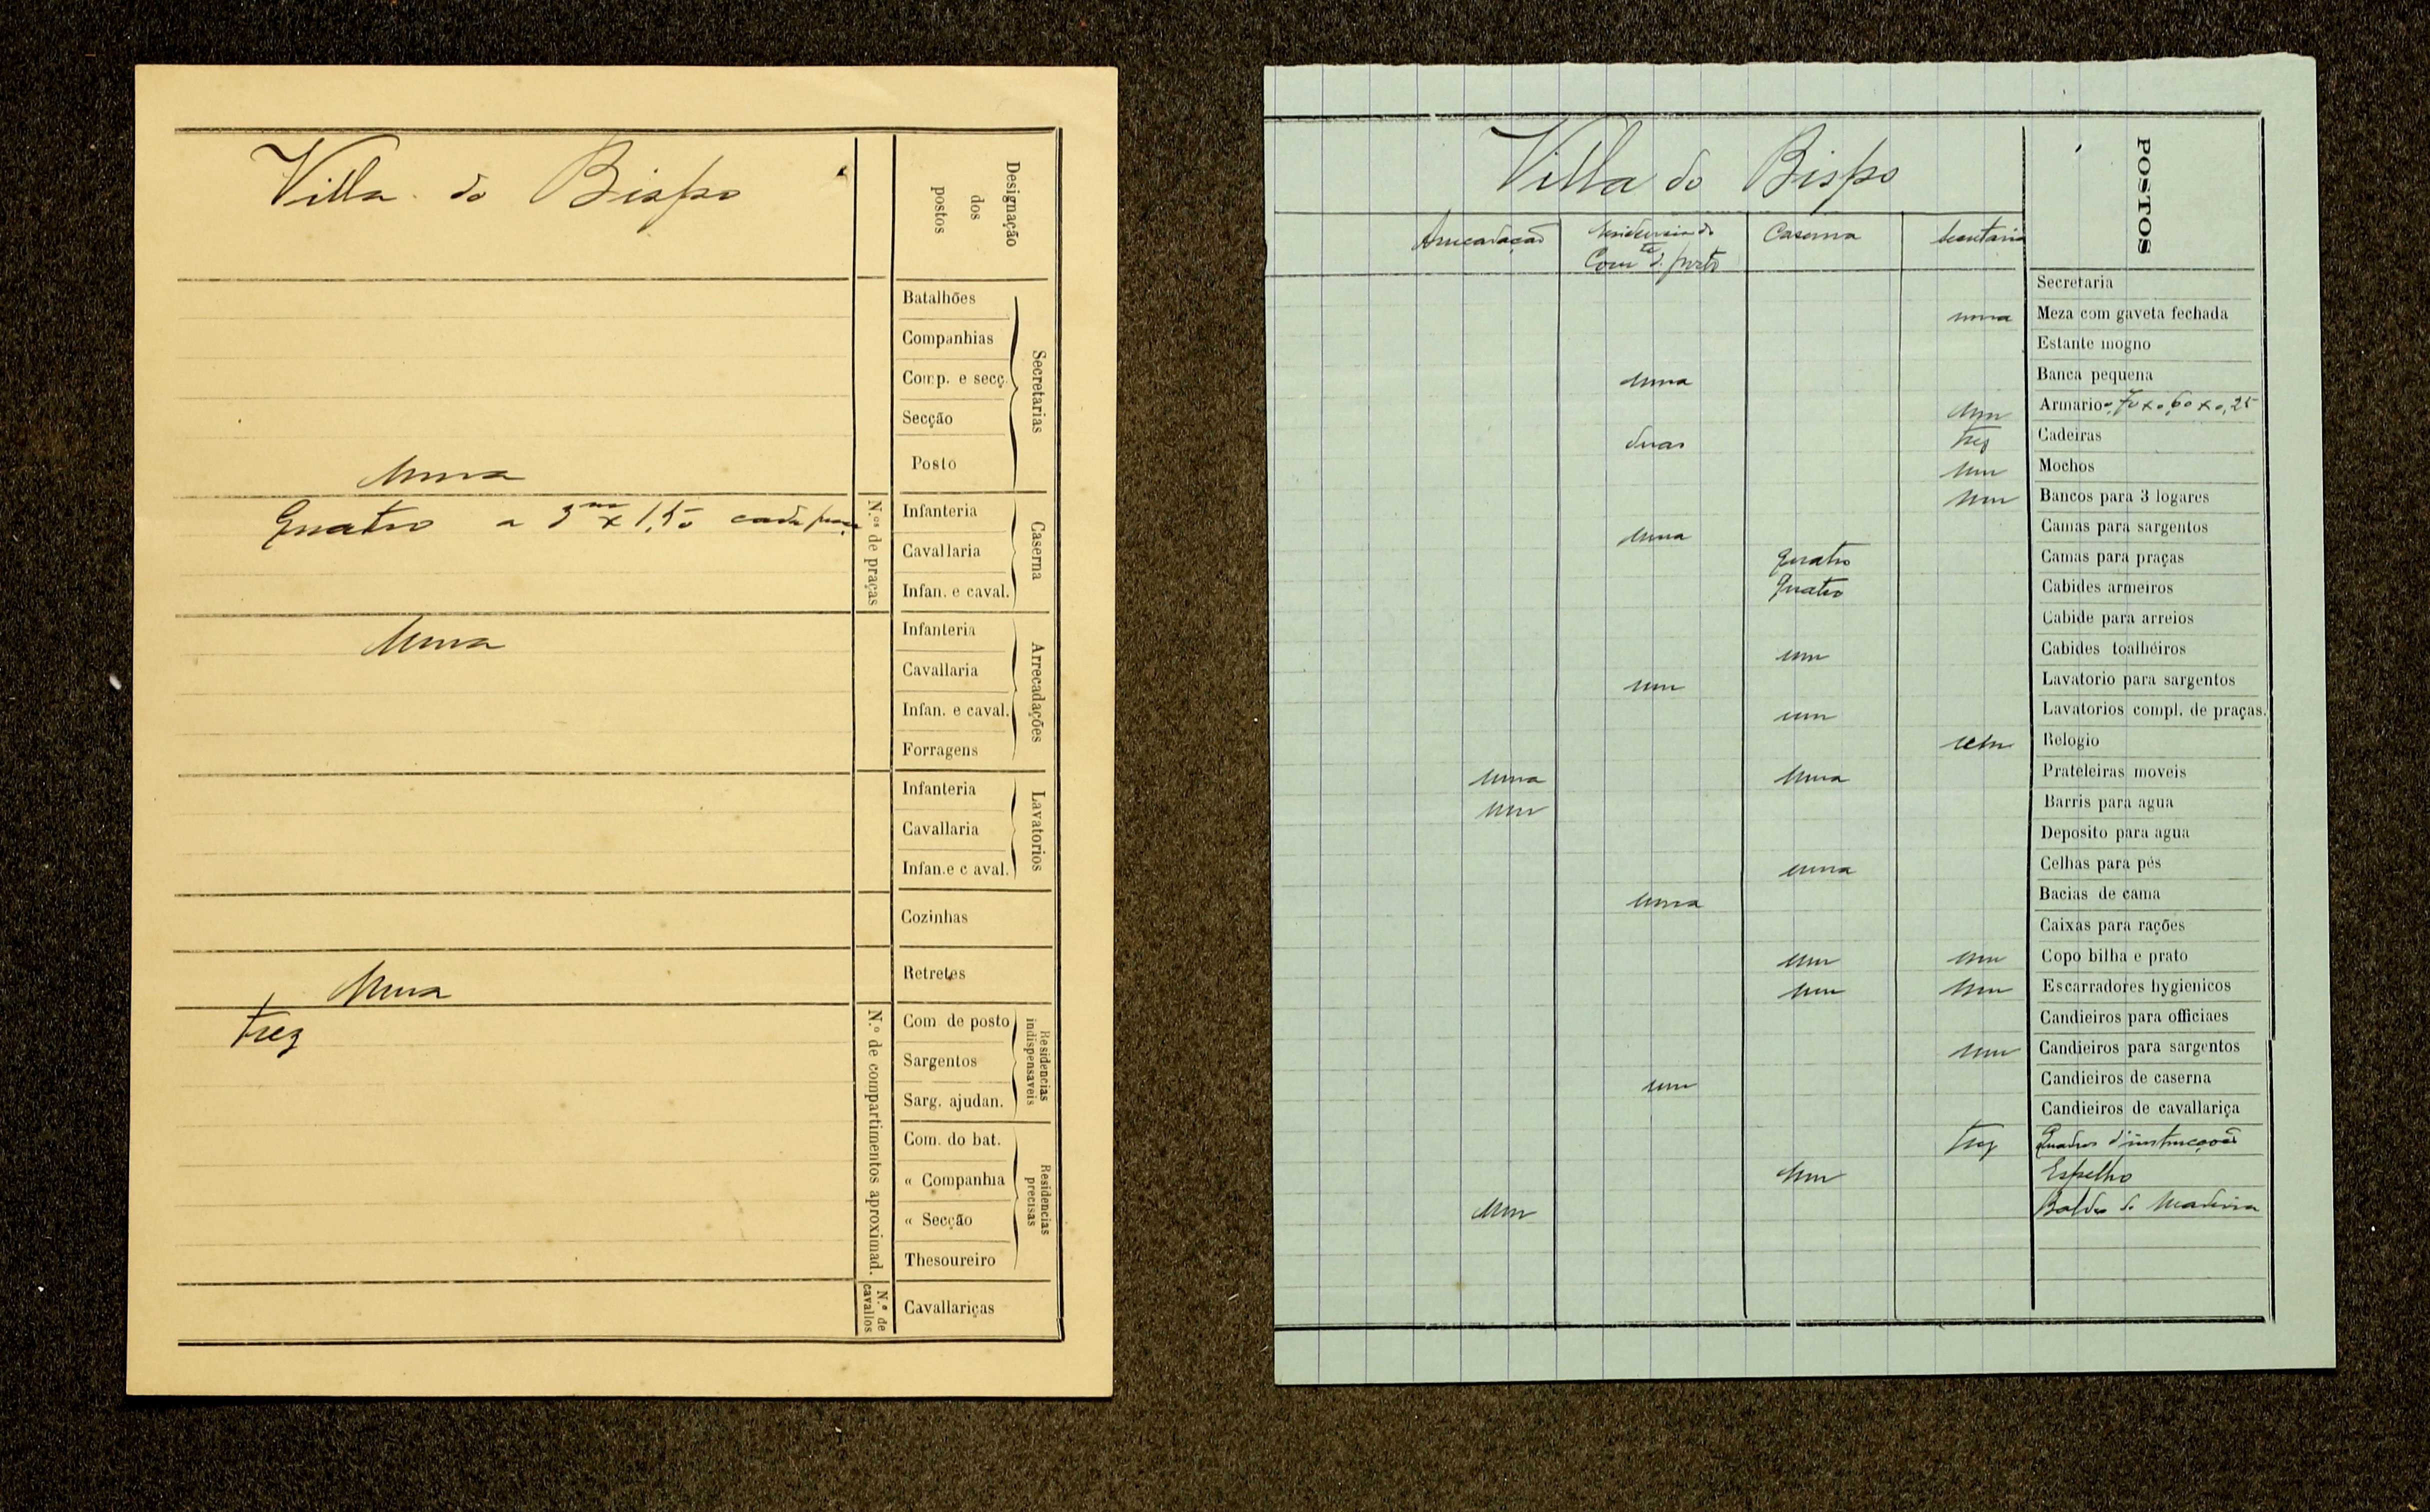 Villa do Bispo
Designação
dos
postos
Secretarias
Batalhões
Companhias
Comp. e secç.
Secção
uma Posto
Caserna
N.os de praças
Quatro a 3m x 1,50 cada Infanteria
Cavallaria
Infan. e caval.
Arrecadações
uma Infanteria
Cavallaria
Infan. e caval.
Forragens
Lavatorios
Infanteria
Cavallaria
Infan.e c aval.
Cozinhas
uma Retretes
Residencias
indispensaveis
N.o de compartimentos aproximad.
trez Com de posto
Sargentos
Sarg. ajudan.
Residencias
precisas
Com. do bat.
« Companhia
« Secção
Thesoureiro
N.o de
cavallos
Cavallariças
Villa do Bispo
POSTOS
Arrecadação Residencia do Caserna Secretaria
Comte d. posto
Secretaria
uma Meza com gaveta fechada
Estante mogno
uma Banca pequena
um Armario 0,70 x 0,60 x 0,25
duas trez Cadeiras
um Mochos
um Bancos para 3 logares
uma Camas para sargentos
quatro Camas para praças
quatro Cabides armeiros
Cabide para arreios
um Cabides toalheiros
um Lavatorio para sargentos
um Lavatorios compl. de praças.
um Relogio
uma uma Prateleiras moveis
um Barris para agua
Deposito para agua
uma Celhas para pés
uma Bacias de cama
Caixas para rações
um um Copo bilha e prato
um um Escarradores hygienicos
Candieiros para officiaes
um Candieiros para sargentos
um Candieiros de caserna
Candieiros de cavallariça
trez Quadros d'instrucção
um Espelho
um Baldes de Madeira